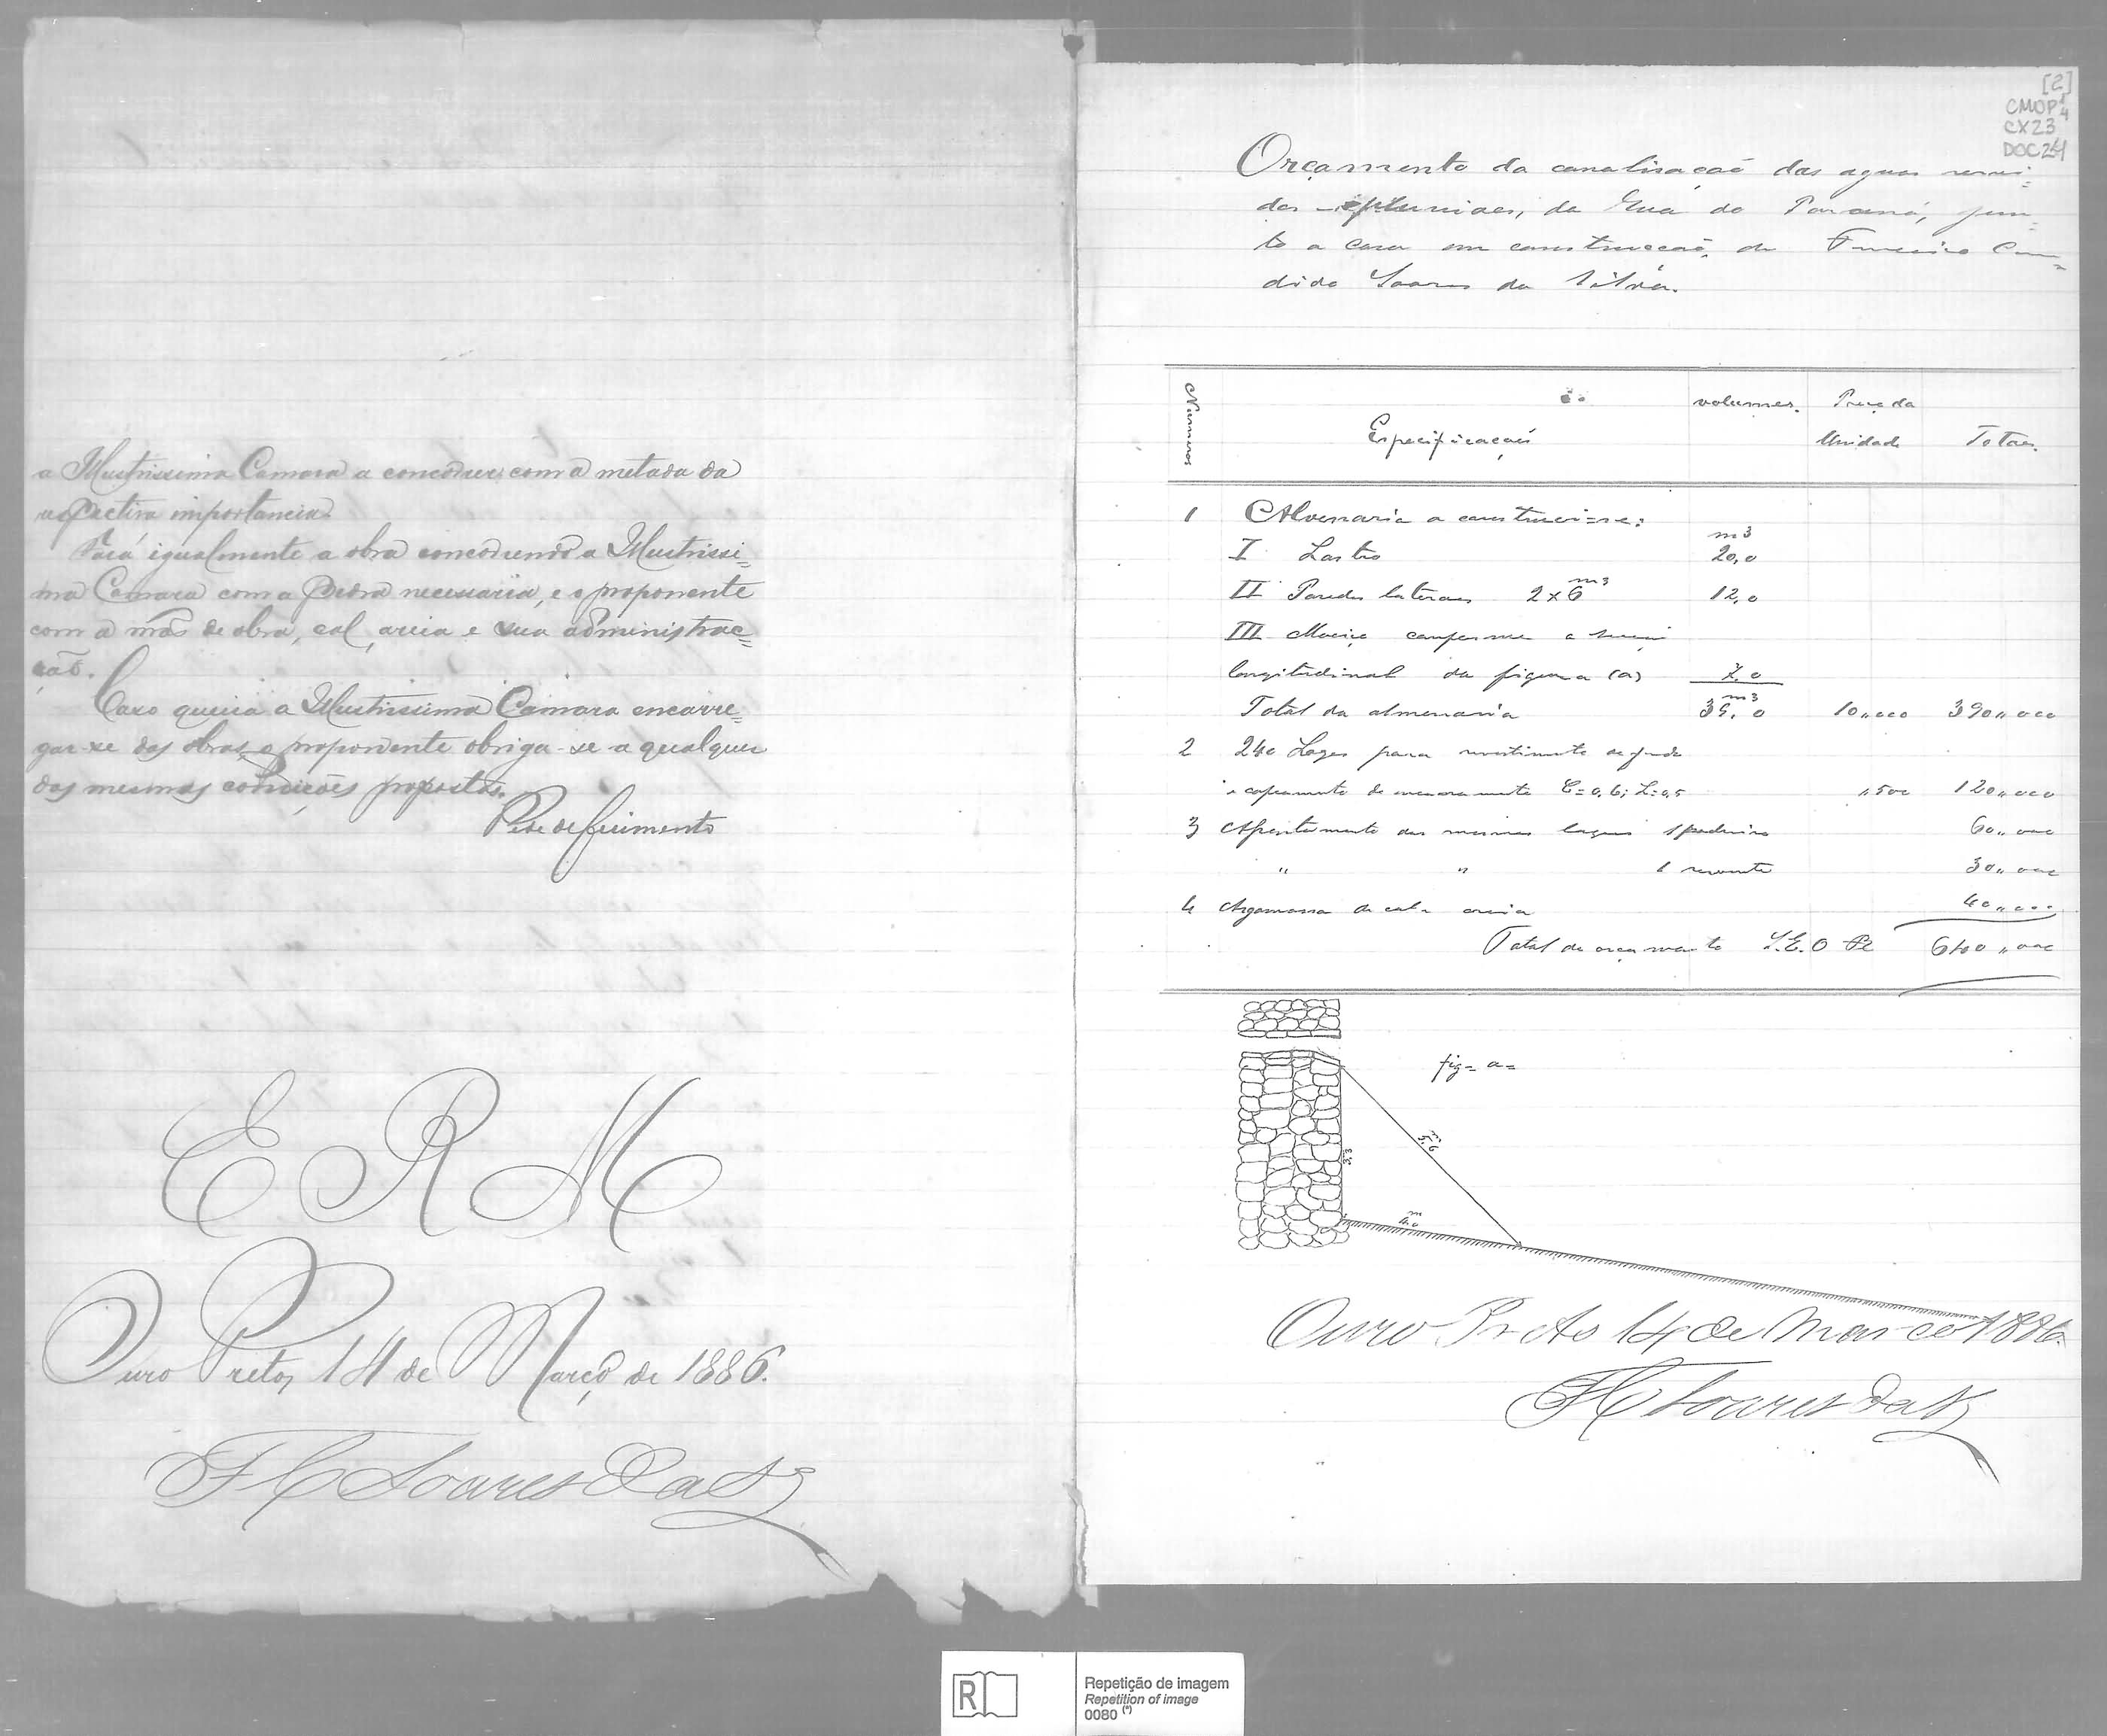 a Illustrissima Camara a concorrer com a metade da
respectiva importancia.
Fará igualmente a obra concorrendo a Illustrissi=
ma Camara com a pedra necessaria, e o proponente
com a mão de obra, cal, areia e sua administrac=
ção.
Caso queira a Illustrissima Camara encarre=
gar-se das obras, o proponente obriga-se a qualquer
das mesmas condicções propostas.
Pede deferimento
E R M
Ouro Preto, 14 de Março de 1886.
F C Soares da Sª
[2]
CMOP
CX23
DOC24
Orçamento da canalisação das aguas servi=
das e pluviaes, da Rua do Paraná, jun=
to a casa em construcção, de Francisco Can=
dido Soares da Silva.
Numeros
Especificação
volumes.
Preço da
Unidade
Totaes.
1 Alvenaria a construir-se:
I Lastro m3 20,0
II Paredes lateraes 2×6 m3 12,0
III Maciço conforme a secção
longitudinal da figura (a) 7,0
Total da alvenaria m3 39,0 10,,000 390,,000
2 240 Lages para revestimento de fundo
e capeamento de C=0,6; L=0,5 ,,500 120,,000
3 Apontamento das mesmas lages 1 pedreiro 60,,000
" " 1 servente 30,,000
4 Argamassa de cal e areia 40,,000
Total do orçamento S.E.O Rs 640,,000
fig= a=
m 5,6
3,3
m 4,0
Ouro Preto 14 de Março 1886.
F C Soares da Sª
R
Repetição de imagem
Repetition of image
0080 (*)